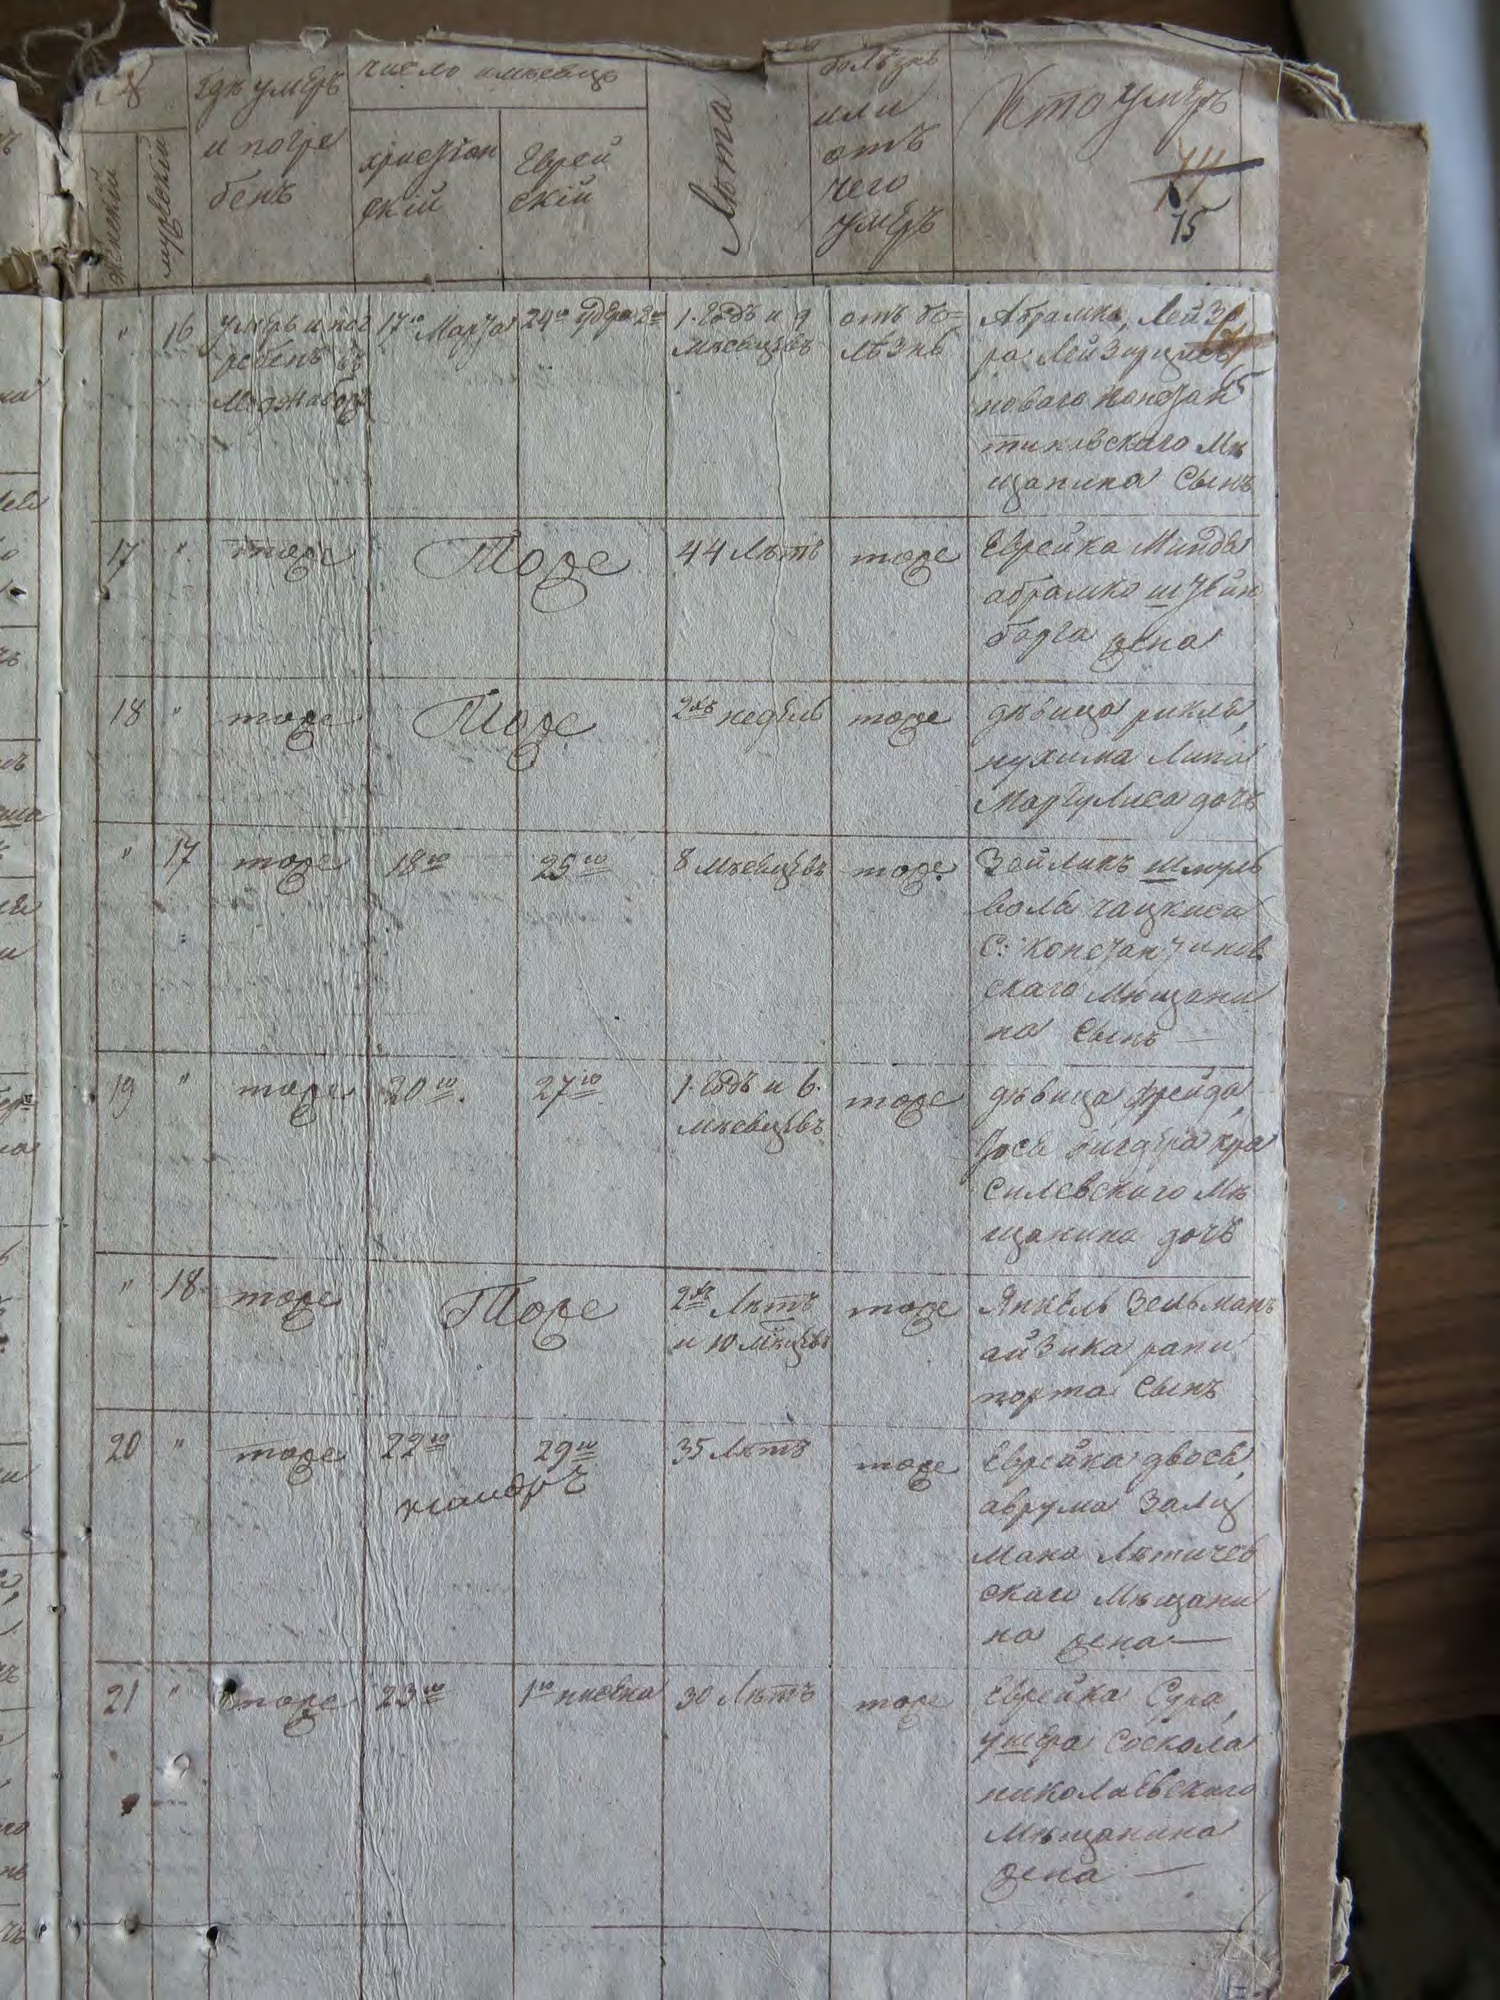 №
женский
мужескій
Гдѣ умеръ
и погре
бенъ
число и мѣсецъ
христіан
скій
Еврей
скій
Лѣта
болѣзнь
или
отъ
чего
умеръ
Кто умеръ
15
" 16 умеръ и пог 17го Марта 24го Адера 2го 1. Годъ и 9 отъ бо= Абрамко, Лейзе
ребенъ въ мѣсецевъ лѣзнь ра Лейзерица
Меджибоже новаго констан
тиновскаго Мѣ
щанина Сынъ
17 " тоже Тоже 44 Лѣтъ тоже Еврейка Минда
абрамко штейн
барга жена
18 " тоже Тоже 2хъ недѣль тоже дѣвица рикля,
нухима Липа
Маргулиса дочь
" 17 тоже 18го 25го 8 мѣсецевъ тоже Зейликъ шмуль
волы чацкиса
С: Константинов
скаго мѣщани
на Сынъ —
19 " тоже 20го. 27го 1. Годъ и 6. тоже дѣвица фрейда,
мѣсецевъ
силевскаго Мѣ
щанина дочь
" 18 тоже Тоже 2хъ Лѣтъ тоже Янкель Зельманъ
и 10 мѣцевъ айзика рапи
порта Сынъ
20 " тоже 22го 29го 35 Лѣтъ тоже Еврейка двося,
аврума Залц
мана Лѣтичев
скаго Мѣщани
на жена —
21 " тоже 23го 1го нисена 30 Лѣтъ тоже Еврейка Сура,
ушера Соскола
николаевскаго
Мѣщанина
жена —